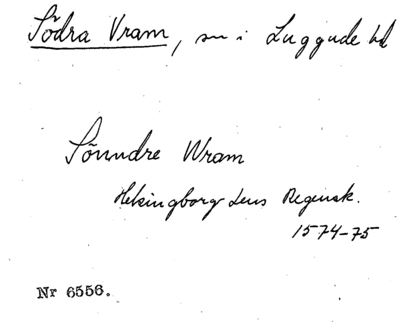 Södra Vram, sn i Luggude hd
Sönndre Wram
Helsingborg Lens Regensk.
1574-75
Nr 6556.